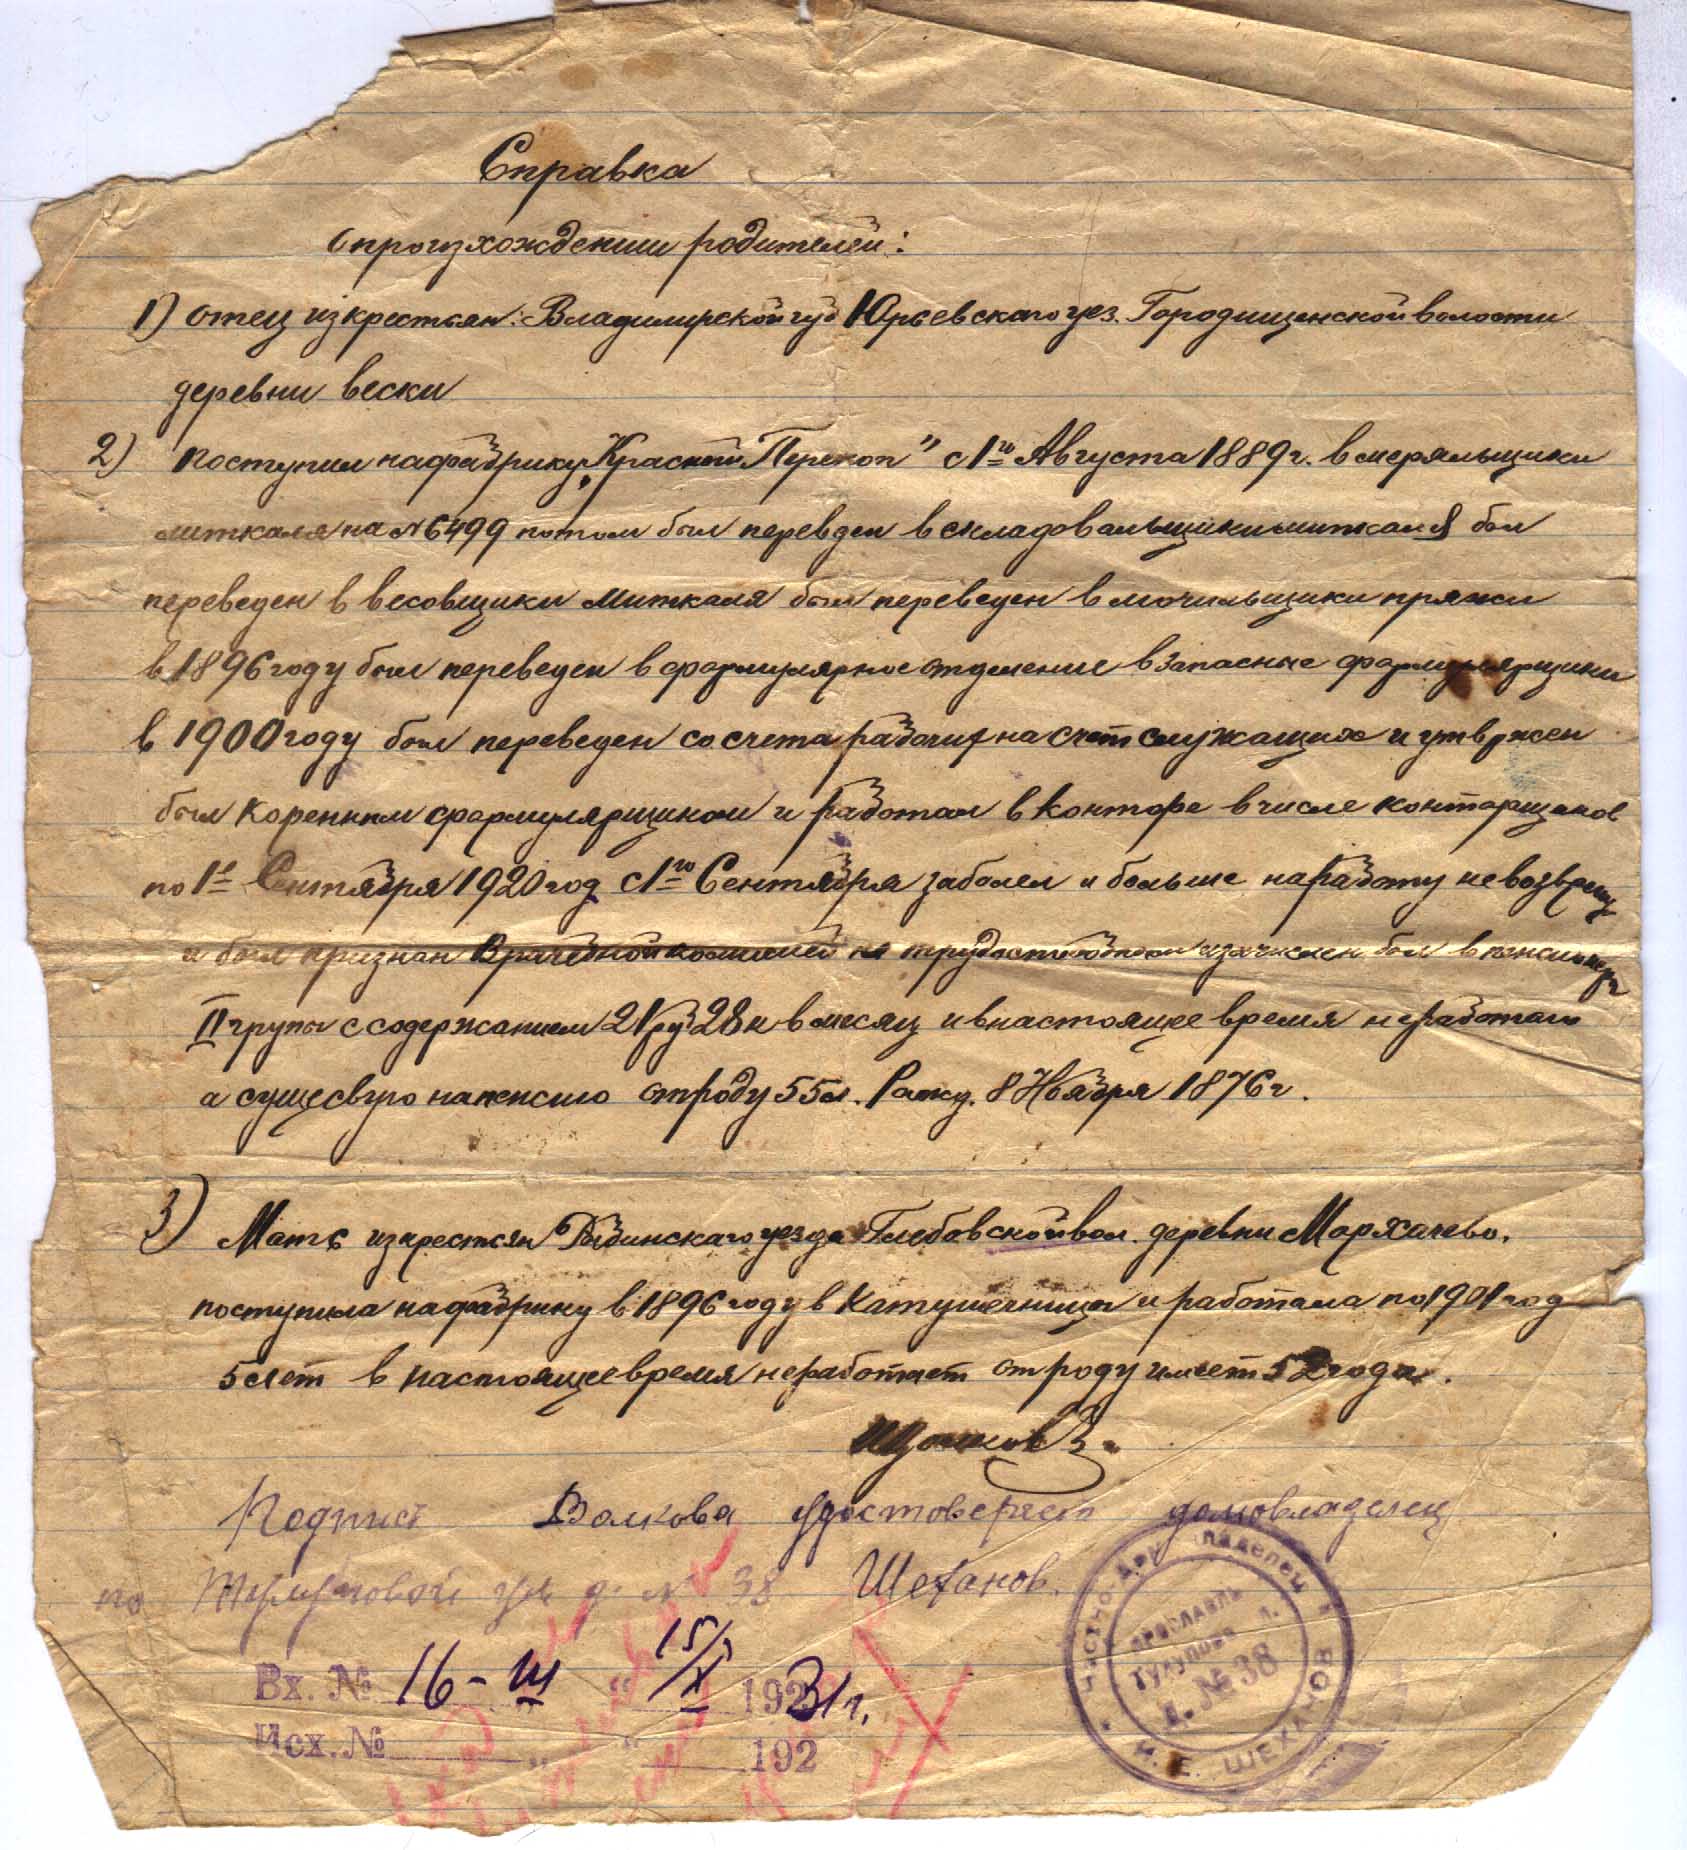 Справка
о произхождении родителей:
1) отец из крестьян: Владимирской губ Юрьевскаго уез. Городищенской волости
деревни вески
2) поступил на фабрику „Красный Перекоп" с 1го Августа 1889 г. в меряльщики
миткаля на № 6499 потом был переведен в складовальщики миткаля был
переведен в весовщики миткаля был переведен в мочильщики пряжи
в 1896 году был переведен в формулярное отделение в запасные формулярщики
в 1900 году был переведен со счета рабочих на счет служащих и утвржен
был коренным формулярщиком и работал в конторе в числе конторщиков
по 1е Сентября 1920 год с 1го Сентября заболел и больше на работу не возвращ
и был признан врачебной комисией не трудоспособным и зачислен был в пенсионеры
II групы с содержанием 21 ру 28 к в месяц и в настоящее время не работаю
а сущесвую на пенсию от роду 55 л. 8 Ноября 1876 г.
3) Мать из крестьян Рыбинскаго уезда Глебовской вол. деревни Мархачево.
поступила на фабрику в 1896 году в катушечницы и работала по 1901 год
5 лет в настоящее время не работает от роду имеет 52 года.
Подпись Волкова удостоверяет домовладелец
по Тулуповой ул д. № 38 Шеханов.
Вх. № 16-Ш " 15/X 1931 г.
Исх. № " " 192
ЧАСТНО-ДОМОВЛАДЕЛЕЦ
И. Е. ШЕХАНОВ
ЯРОСЛАВЛЬ
ТУЛУПОВА л.
Д. № 38